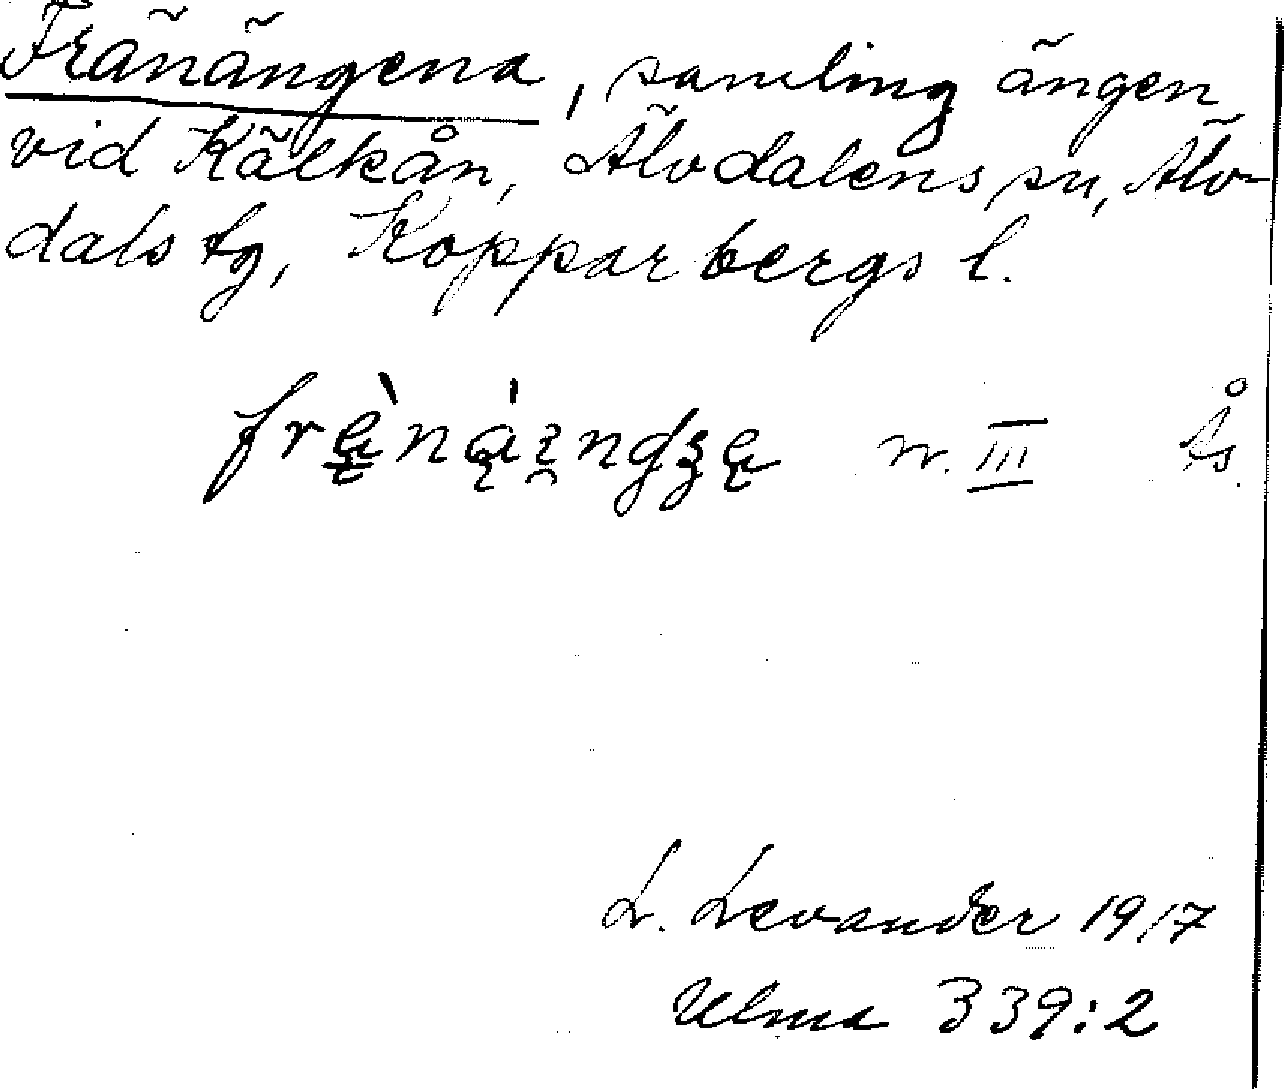 Fränängena, samling ängen
vid Kälkån, Älvdalens sn, Älv-
dals tg, Kopparbergs l.
n. III Ås.
L. Levander 1917
Ulma 339:2